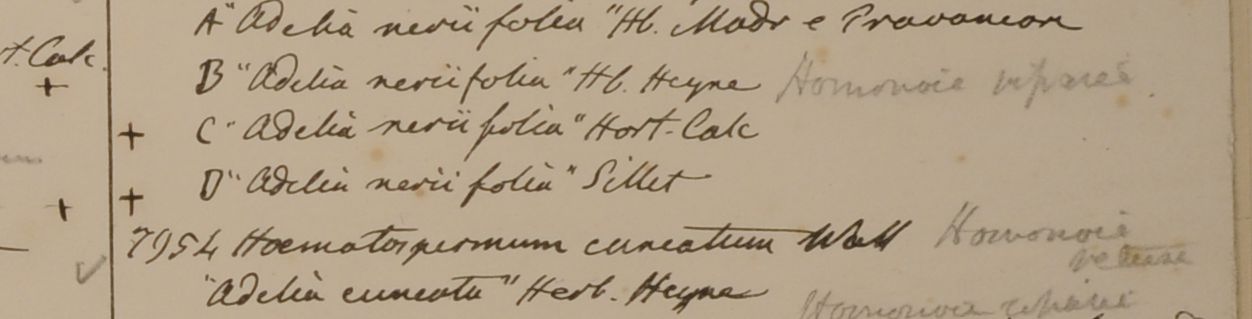 A "Adelia nerii folia" Hb. Madr e Travancore
t. Calc.
B "Adelia nerii folia" Hb. Heyne Homonoia riparia
C "Adelia nerii folia" Hort. Calc
D "Adelia nerii folia" Sillet
7954 Haematospermum cuneatum Wall Homonoia
retusa
"Adelia cuneata" Herb. Heyne
Homonoia riparia